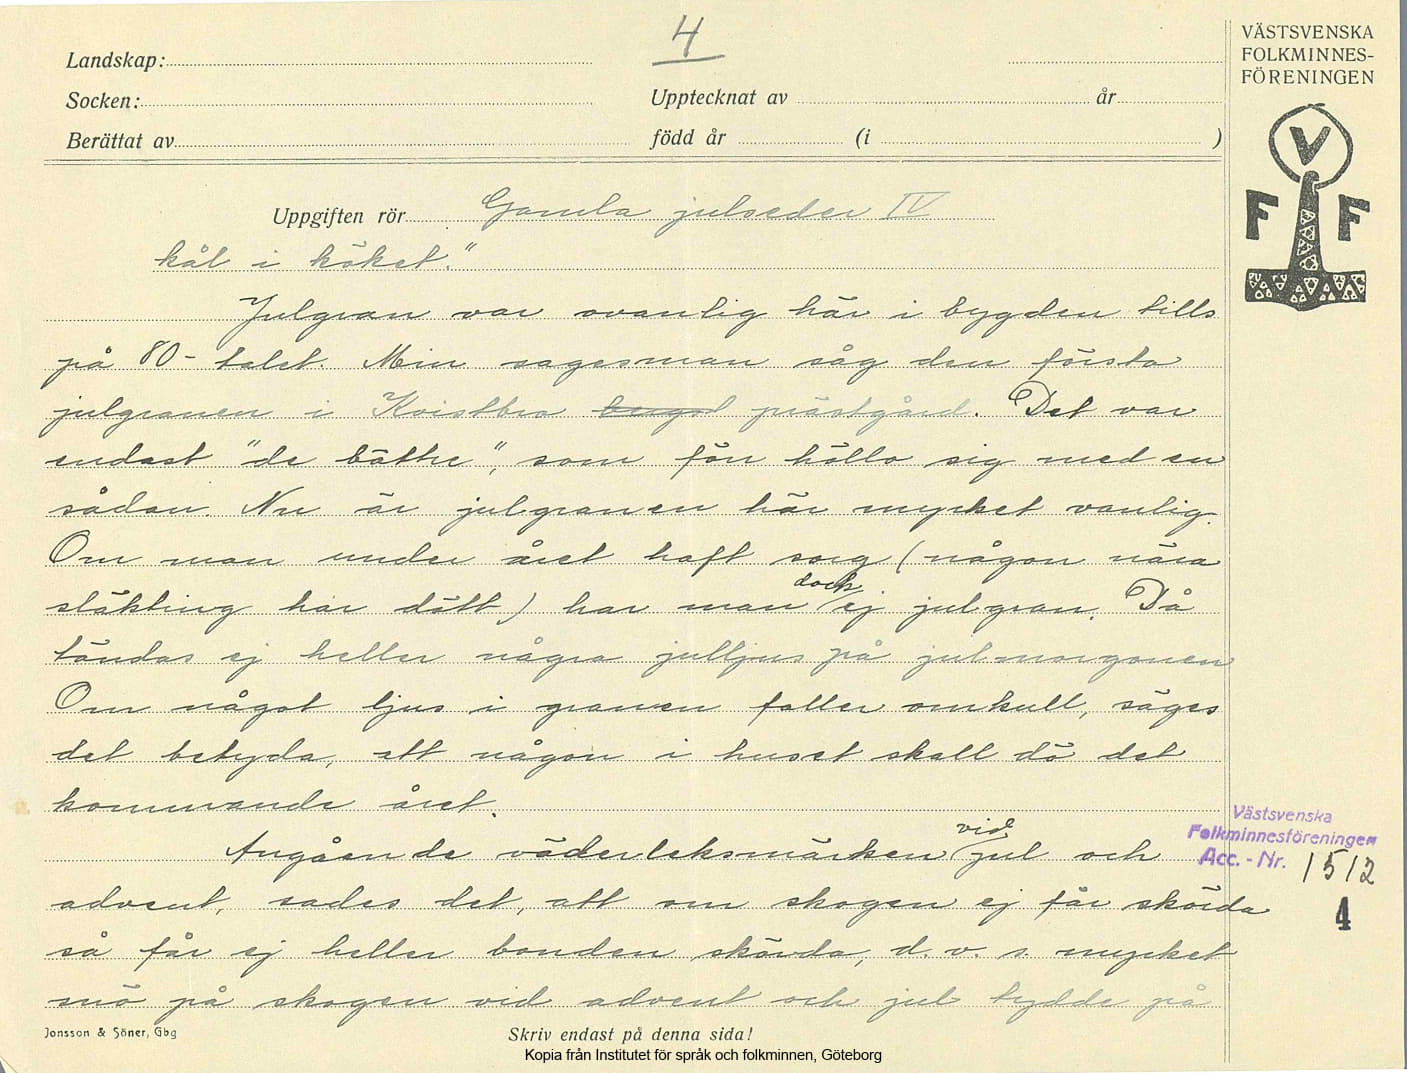 4
VÄSTSVENSKA
FOLKMINNES-
FÖRENINGEN
Landskap:
Socken:
Upptecknat av år
Berättat av född år (i )
V
F F
Uppgiften rör Gamla julseder IV
kål i köket."
Julgran var ovanlig här i bygden tills
på 80-talet. Min sagesman såg den första
julgranen i Kvistbro prästgård. Det var
endast "de bättre", som förr höllo sig med en
sådan. Nu är julgranen här mycket vanlig.
Om man under året haft sorg (någon nära
släkting har dött) har man dock ej julgran. Då
tändas ej heller några julljus på julmorgonen
Om något ljus i granen faller omkull, säges
det betyda, att någon i huset skall dö det
kommande året.
Angående väderleksmärken vid jul och
advent, sades det, att om skogen ej får skörda
så får ej heller bonden skörda, d.v.s. mycket
snö på skogen vid advent och jul tydde på
Västsvenska
Folkminnesföreningen
Acc.-Nr. 1512
4
Jonsson & Söner, Gbg
Skriv endast på denna sida!
Kopia från Institutet för språk och folkminnen, Göteborg